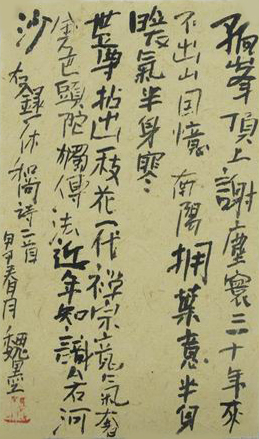 孤峯頂上謝塵寰三十年來
不出山回憶南陽擁葉意半身
暖氣半身寒
世尊拈出一枝花一代禪宗意氣奢
金色頭陀獨傳法近年知識河
沙 右錄一休和尚詩二首 甲午春月 魏墨